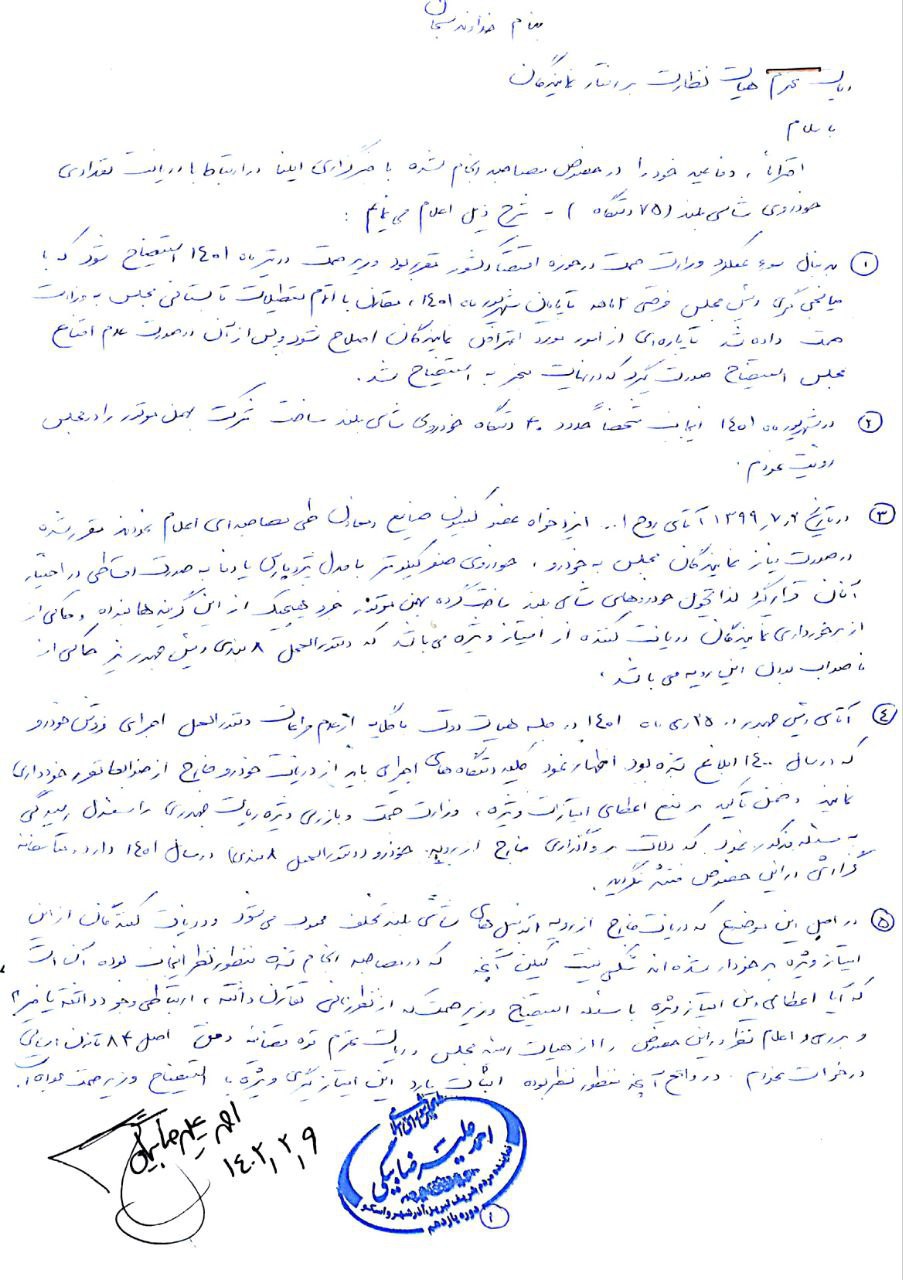 بنام خداوند سبحان
ریاست محترم هیات نظارت بر رفتار نمایندگان
با سلام
احتراماً، دفاعیه خود را در خصوص مصاحبه انجام شده با خبرگزاری ایلنا در ارتباط با دریافت تعدادی
خودروی شاسی بلند (۷۵ دستگاه) به شرح ذیل اعلام می نمایم :
① بدنبال سوء عملکرد وزارت صمت در حوزه اقتصاد کشور مقرر بود وزیر صمت در تیر ماه ۱۴۰۱ استیضاح شود که با
میانجی گری رئیس مجلس فرصتی ۲ ماهه تا پایان شهریور ماه ۱۴۰۱، مقارن با اتمام تعطیلات تابستانی مجلس به وزارت
صمت داده شد تا پاره‌ای از امور مورد اعتراض نمایندگان اصلاح شود و پس از آن در صورت عدم اقناع
مجلس استیضاح صورت گیرد که در نهایت منجر به استیضاح شد.
② در شهریور ماه ۱۴۰۱ اینجانب شخصاً حدود ۴۰ دستگاه خودروی شاسی بلند ساخت شرکت بهمن موتور را در مجلس
رویت نمودم.
③ در تاریخ ۱۳۹۹,۷,۲ آقای روح ا.. ایزدخواه عضو کمیسیون صنایع و معادن طی مصاحبه‌ای اعلام نمودند مقرر شده
در صورت نیاز نمایندگان مجلس به خودرو، خودروی صفر کیلومتر با مدل تیبا، پارس یا دنا به صورت اقساطی در اختیار
آنان قرار گیرد لذا تحویل خودروهای شاسی بلند ساخت گروه بهمن موتور جزو هیچیک از این گزینه ها نبوده و حاکی از
از برخورداری نمایندگان دریافت کننده از امتیاز ویژه می باشد که دستورالعمل ۸ بندی رئیس جمهور نیز حاکی از
ناصواب بودن این رویه می باشد.
④ آقای رئیس جمهور در ۲۵ دی ماه ۱۴۰۱ در جلسه هیات دولت با گلایه از عدم مراعات دستورالعمل اجرای فروش خودرو
که در سال ۱۴۰۰ ابلاغ شده بود اظهار نمود کلیه دستگاه های اجرایی باید از دریافت خودرو خارج از ضوابط مقرر خودداری
نمایند و ضمن تاکید بر منع اعطای امتیازات ویژه، وزارت صمت و بازرسی ویژه ریاست جمهوری را مسئول رسیدگی
به مسئله مذکور نمود که دلالت بر واگذاری خارج از رویه خودرو (دستورالعمل ۸ بندی) در سال ۱۴۰۱ دارد و متاسفانه
گزارشی در این خصوص منتشر نگردید.
⑤ در اصل این موضوع که دریافت خارج از رویه اتومبیل های شاسی بلند تخلف محسوب می شود و دریافت کنندگان از این
امتیاز ویژه برخوردار شده اند شکی نیست لیکن آنچه که در مصاحبه انجام شده منظور نظر اینجانب بوده آن است
که آیا اعطای این امتیاز ویژه با مسئله استیضاح وزیر صمت که از نظر زمانی تقارن داشته، ارتباطی وجود داشته یا خیر؟
و بررسی و اعلام نظر در این خصوص را از هیات رئیسه مجلس و ریاست محترم قوه قضائیه وفق اصل ۸۴ قانون اساسی
درخواست نمودم. در واقع آنچه منظور نظر بوده اثبات یا رد این امتیازگیری ویژه با استیضاح وزیر صمت بوده است.
احمد علیرضابیگی
۱۴۰۲,۲,۹
مجلس شورای اسلامی
احمد علیرضابیگی
نماینده مردم شریف تبریز، آذرشهر و اسکو
دوره یازدهم
①